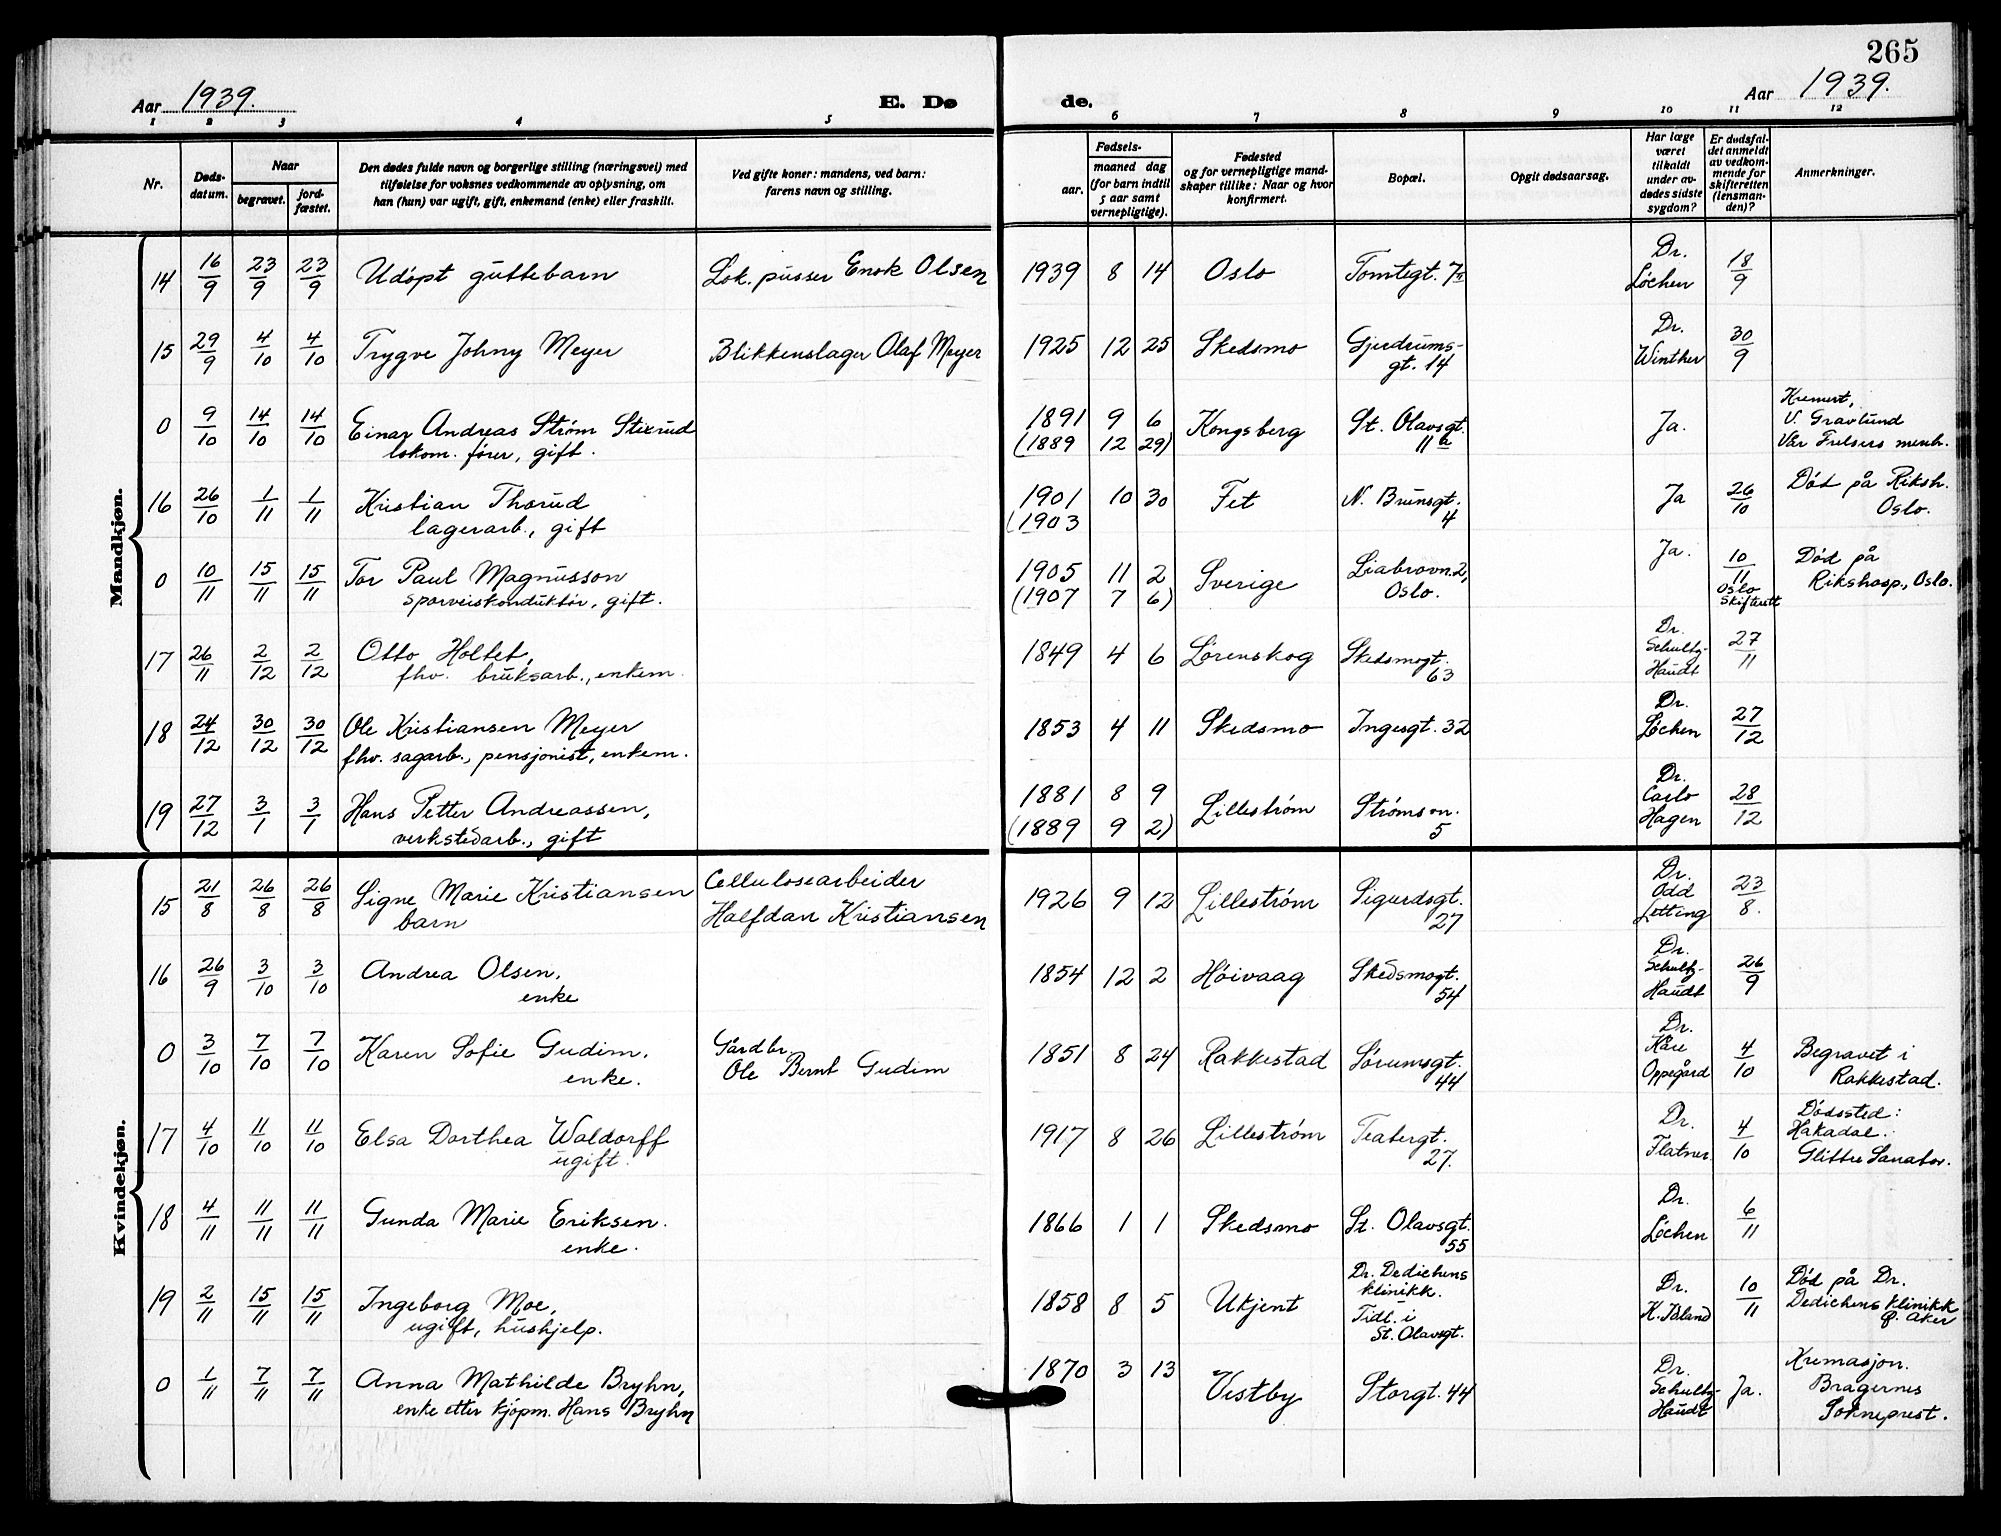 265
Aar 1939. E. Dø de. Aar 1939.
1 2 3 4 5 6 7 8 9 10 11 12
Nr.
Døds-
datum.
Naar
begravet.
jord-
fæstet.
Den dødes fulde navn og borgerlige stilling (næringsvei) med
tilføielse for voksnes vedkommende av oplysning, om
han (hun) var ugift, gift, enkemand (enke) eller fraskilt.
Ved gifte koner: mandens, ved barn:
farens navn og stilling.
Fødsels-
aar.
maaned dag
(for barn indtil
5 aar samt
vernepligtige).
Fødested
og for vernepligtige mand-
skaper tillike: Naar og hvor
konfirmert.
Bopæl.
Opgit dødsaarsag.
Har læge
været
tilkaldt
under av-
dødes sidste
sygdom?
Er dødsfal-
det anmeldt
av vedkom-
mende for
skifteretten
(lensman-
den)?
Anmerkninger.
Mandkjøn.
14 16/9 23/9 23/9 Udöpt guttebarn Lok. pusser Enok Olsen 1939 8 14 Oslo Tomtegt. 7II Dr. Løchen 18/9
15 29/9 4/10 4/10 Trygve Johny Meyer Blikkenslager Olaf Meyer 1925 12 25 Skedsmo Gjerdrums-
gt. 14 Dr. Winther 30/9
0 9/10 14/10 14/10 Einar Andreas Strøm Stixrud
lokom. fører, gift. 1891 9 6
(1889 12 29) Kongsberg St. Olavsgt.
11a Ja. Kremert,
V. Gravlund
Vår Frelsers menh.
16 26/10 1/11 1/11 Kristian Thorud
lagerarb., gift 1901 10 30
(1903 Fet N. Brunsgt.
4 Ja 26/10 Död på Riksh.
Oslo.
0 10/11 15/11 15/11 Tor Paul Magnusson
sporveiskonduktör, gift. 1905 11 2
(1907 7 6) Sverige Liabrovn. 2,
Oslo. Ja. 10/11
Oslo
skifterett Død på
Rikshosp., Oslo.
17 26/11 2/12 2/12 Otto Holtet,
fhv. bruksarb., enkem. 1849 4 6 Lørenskog Skedsmogt.
63 Dr.
Schultz-
Haudt 27/11
18 24/12 30/12 30/12 Ole Kristiansen Meyer
fhv. sagarb., pensjonist, enkem. 1853 4 11 Skedsmo Ingesgt. 32 Dr.
Løchen 27/12
19 27/12 3/1 3/1 Hans Petter Andreassen,
verkstedarb., gift 1881 8 9
(1889 9 2) Lillestrøm Strømsvn.
5 Dr.
Carlo
Hagen 28/12
Kvindekjøn.
15 21/8 26/8 26/8 Signe Marie Kristiansen
barn Cellulosearbeider
Halfdan Kristiansen 1926 9 12 Lillestrøm Sigurdsgt.
27 Dr.
Odd
Letting 23/8.
16 26/9 3/10 3/10 Andrea Olsen,
enke 1854 12 2 Höivaag Skedsmogt.
54 Dr.
Schultz-
Haudt 26/9
0 3/10 7/10 7/10 Karen Sofie Gudim.
enke. Gårdbr.
Ole Bernt Gudim 1851 8 24 Rakkestad Sørumsgt.
44 Dr.
Kåre
Oppegård 4/10 Begravet i
Rakkestad.
17 4/10 11/10 11/10 Elsa Dorthea Waldorff
ugift. 1917 8 26 Lillestrøm Teatergt.
27. Dr.
Flatner. 4/10 Dödssted:
Hakadal.
Glittre Sanator.
18 4/11 11/11 11/11 Gunda Marie Eriksen.
enke. 1866 1 1 Skedsmo St. Olavsgt.
55 Dr.
Løchen 6/11
19 2/11 15/11 15/11 Ingeborg Moe,
ugift, hushjelp. 1858 8 5 Ukjent Dr. Dedichens
klinikk.
Tidl. i
St. Olavsgt. Dr. 10/11 Död på Dr.
Dedichens klinikk
Ø. Aker
0 1/11 7/11 7/11 Anna Mathilde Bryhn,
enke etter kjøpm. Hans Bryhn 1870 3 13 Vestby Storgt. 44 Dr.
Schultz-
Haudt Ja. Kremasjon.
Bragernes
Sokneprest.